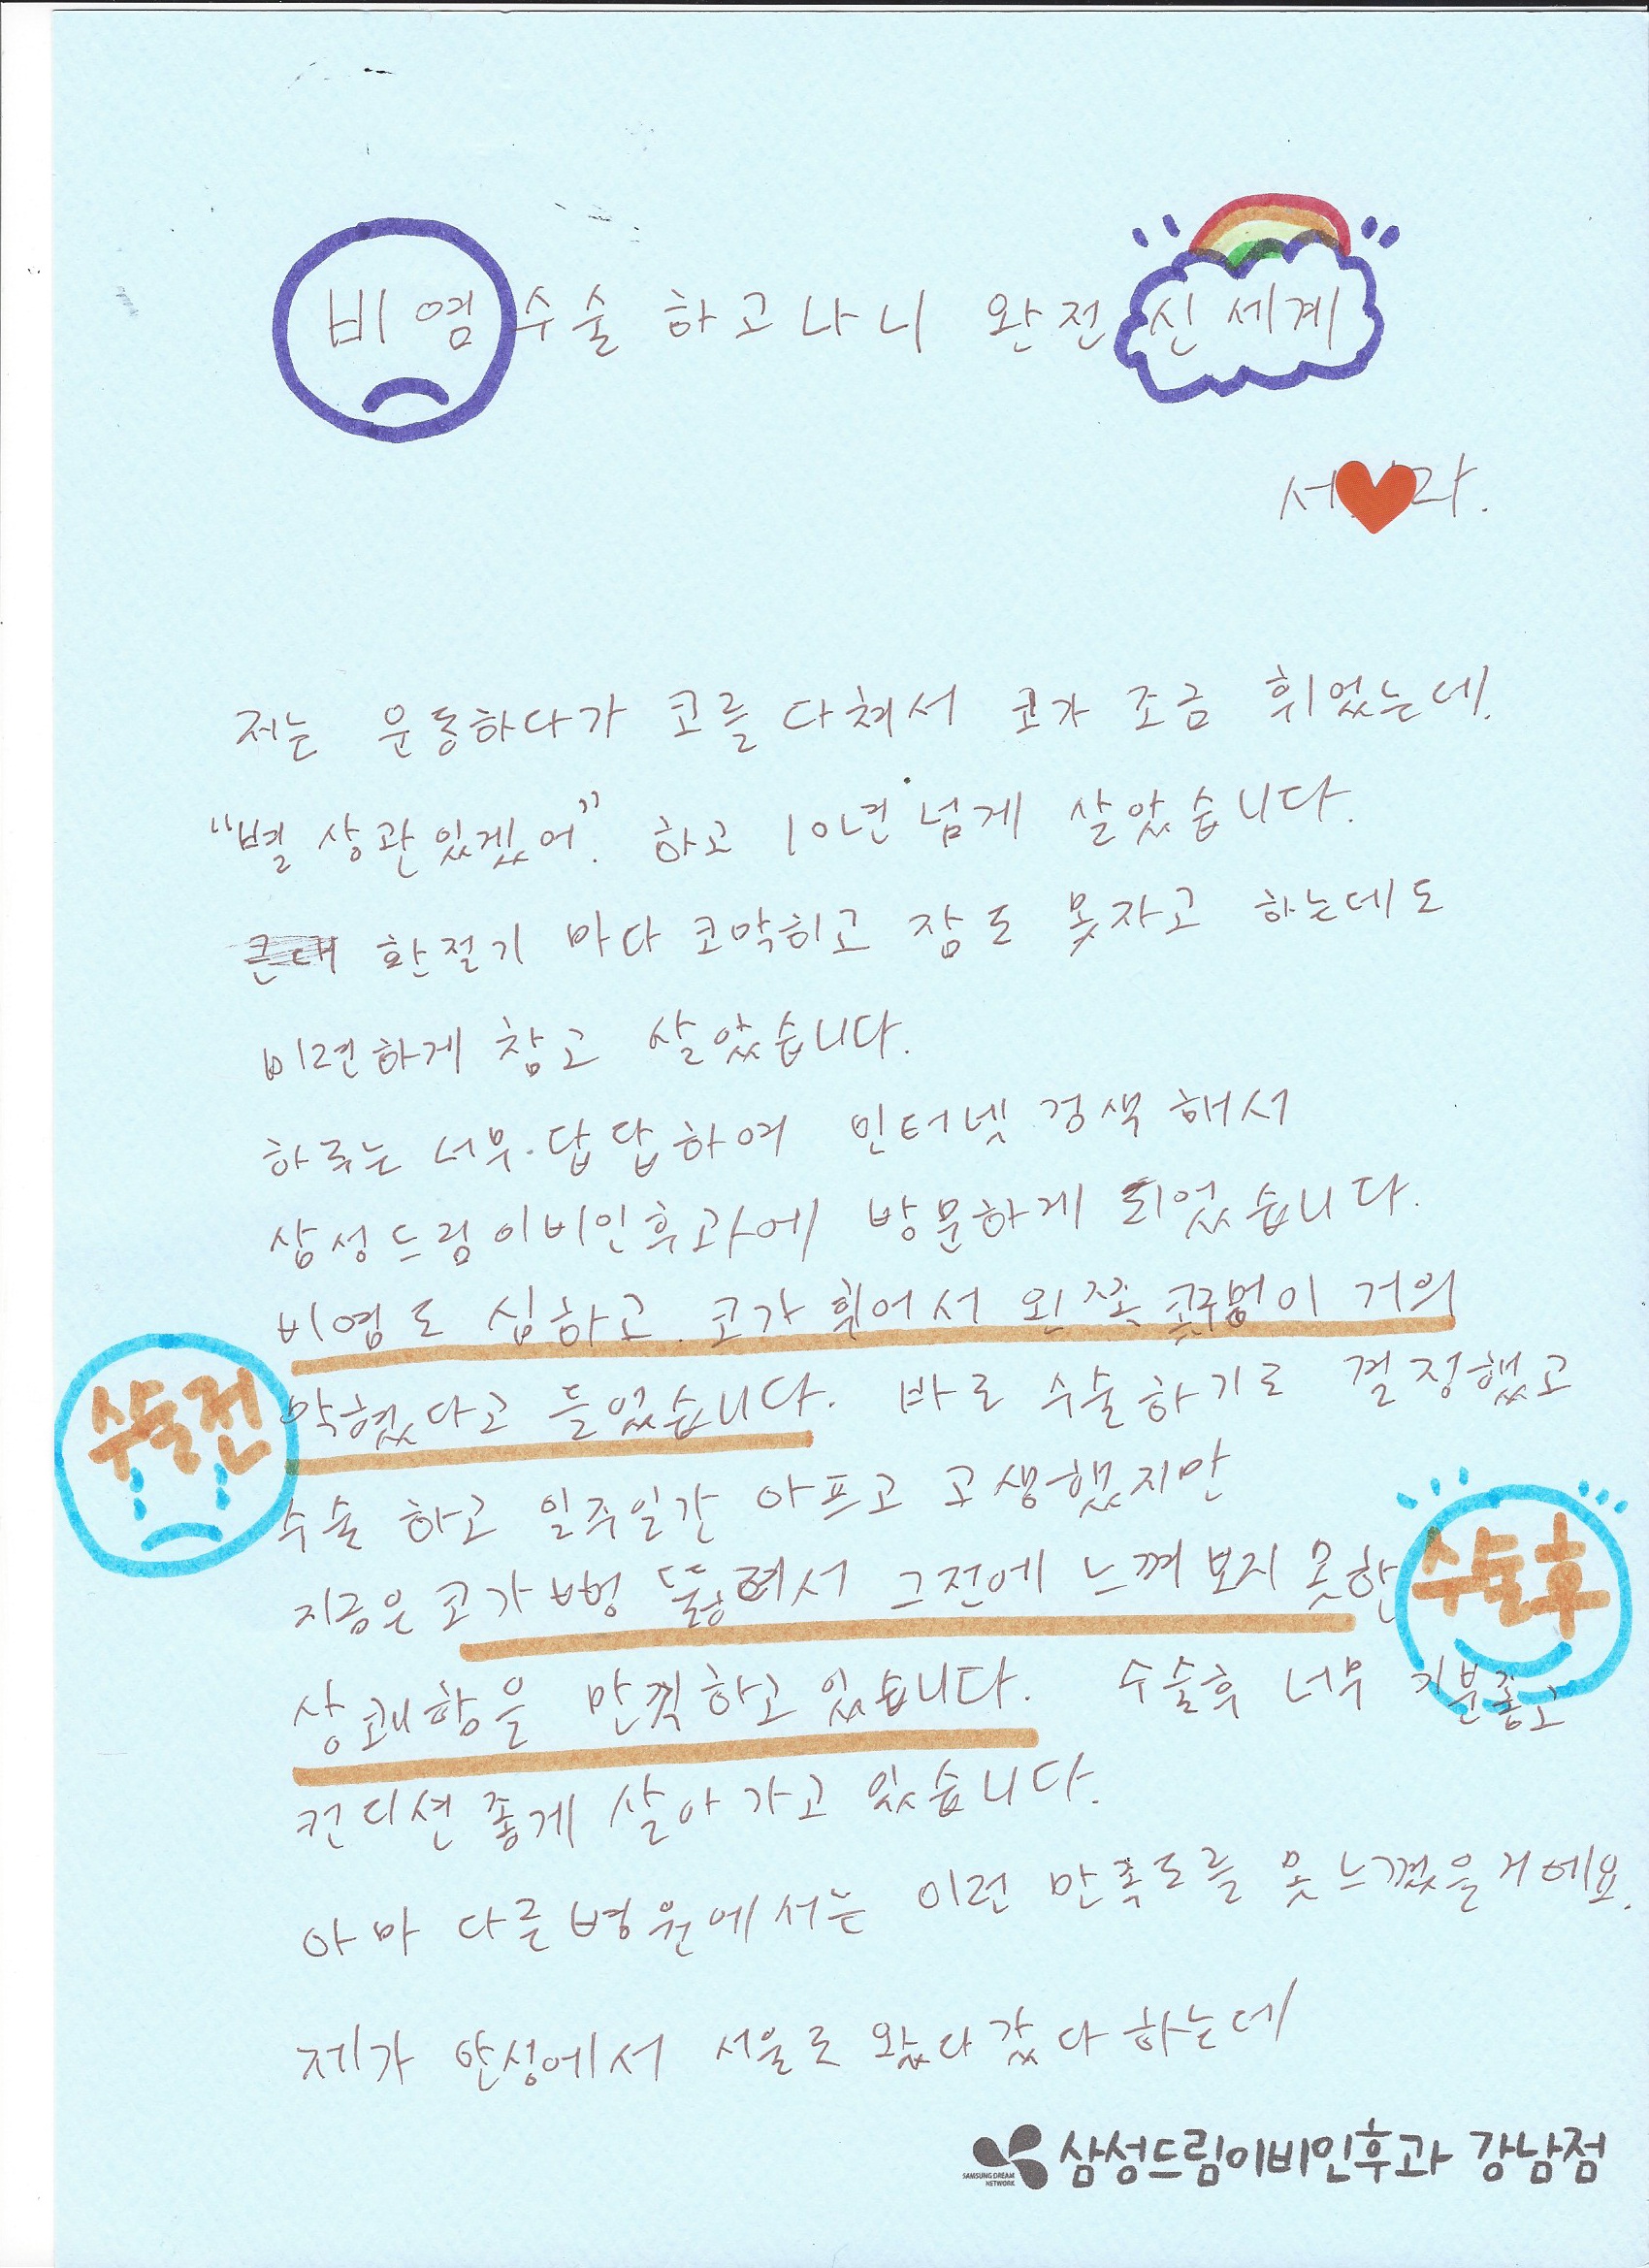 비염 수술 하고나니 완전 신세계
서 라.
저는 운동하다가 코를 다쳐서 코가 조금 휘었는데.
"별 상관있겠어". 하고 10년 넘게 살았습니다.
환절기 마다 코막히고 잠도 못자고 하는데도
미련하게 참고 살았습니다.
하루는 너무 답답하여 인터넷 검색 해서
삼성드림이비인후과에 방문하게 되었습니다.
비염도 심하고. 코가 휘어서 왼쪽 콧구멍이 거의
막혔다고 들었습니다. 바로 수술하기로 결정했고
수술전
수술 하고 일주일간 아프고 고생했지만
지금은 코가 뻥 뚫려서 그전에 느껴보지 못한
수술후
상쾌함을 만끽하고 있습니다. 수술후 너무 기분좋고
컨디션좋게 살아가고 있습니다.
아마 다른병원에서는 이런 만족도를 못느꼈을거에요.
제가 안성에서 서울로 왔다갔다 하는데
SAMSUNG DREAM NETWORK 삼성드림이비인후과 강남점